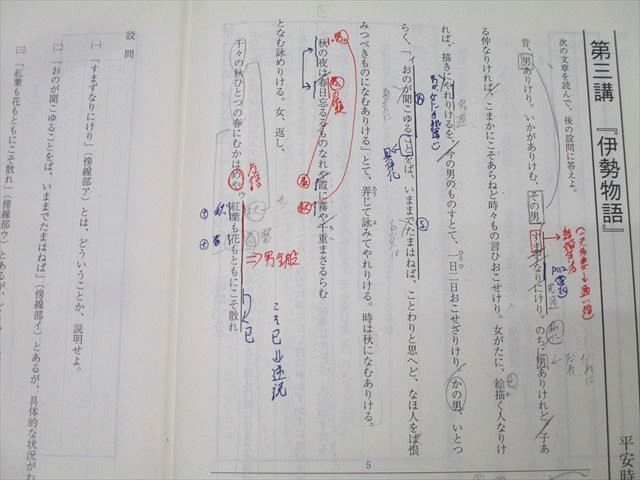 第三講 『伊勢物語』
平安時
次の文章を読んで、後の設問に答えよ。
昔、男ありけり。いかがありけむ、その男すまずなりにけり。のちに男ありけれど、子あ
る仲なりければ、こまかにこそあらねど時々もの言ひおこせけり。女がたに、絵描く人なりけ
れば、描きにやれりけるを、今の男のものすとて、一日二日おこせざりけり。かの男、いとつ
らく、「おのが聞こゆることをば、いままでたまはねば、ことわりと思へど、なほ人をば恨
みつべきものになむありける」とて、弄じて詠みてやれりける。時は秋になむありける。
秋の夜は春日忘るるものなれや霞に霧や千重まさるらむ
となむ詠めりける。女、返し、
千々の秋ひとつの春にむかはめや紅葉も花もともにこそ散れ
ア
イ
ウ
こそ已 逆説
已
反語
⇒男全般
具体化
秋
春
5
設問
㈠ 「すまずなりにけり」(傍線部ア)とは、どういうことか、説明せよ。
㈡ 「おのが聞こゆることをば、いままでたまはねば」(傍線部イ)とあるが、具体的な状況がわ
㈢ 「紅葉も花もともにこそ散れ」(傍線部ウ)とあるが、